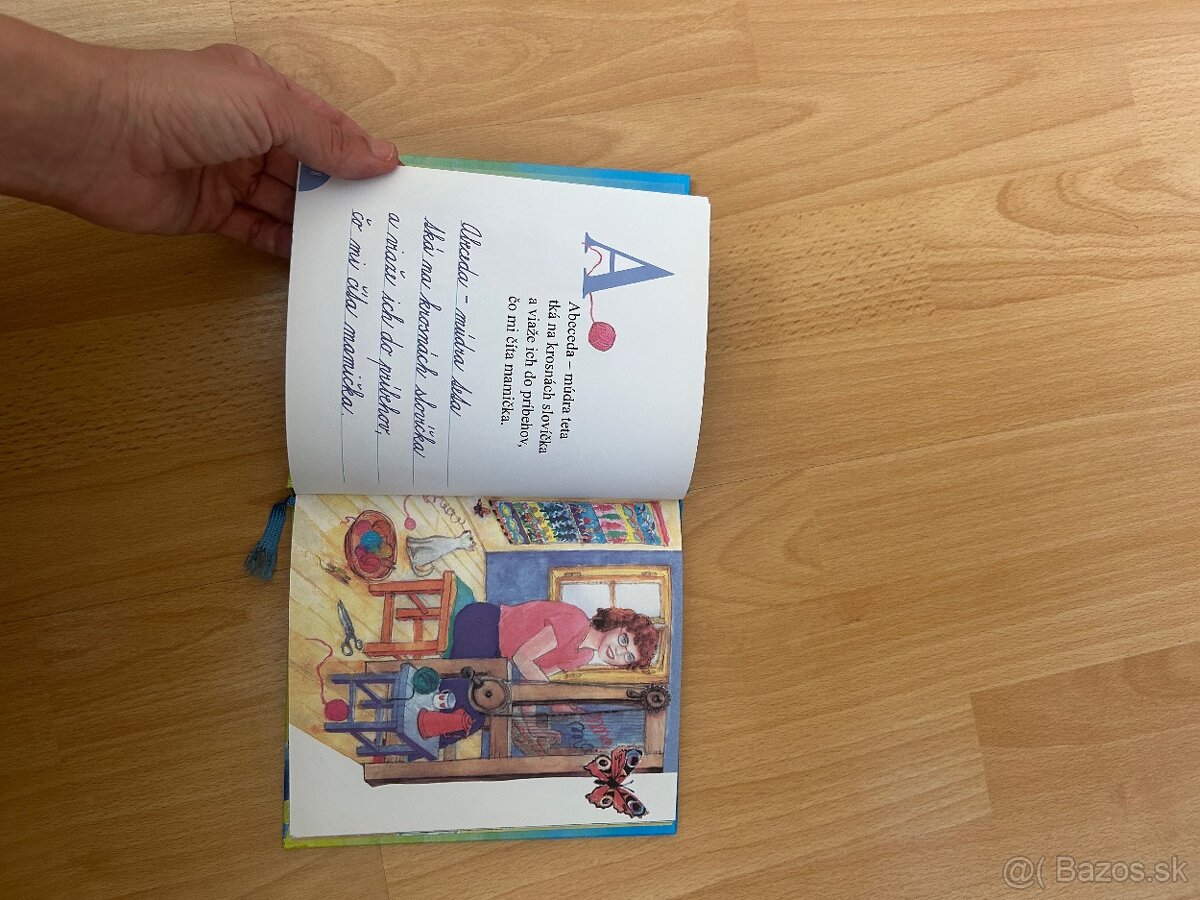 A
Abeceda – múdra teta
tká na krosnách slovíčka
a viaže ich do príbehov,
čo mi číta mamička.
Abeceda – múdra teta
tká na krosnách slovíčka
a viaže ich do príbehov,
čo mi číta mamička
@( Bazos.sk